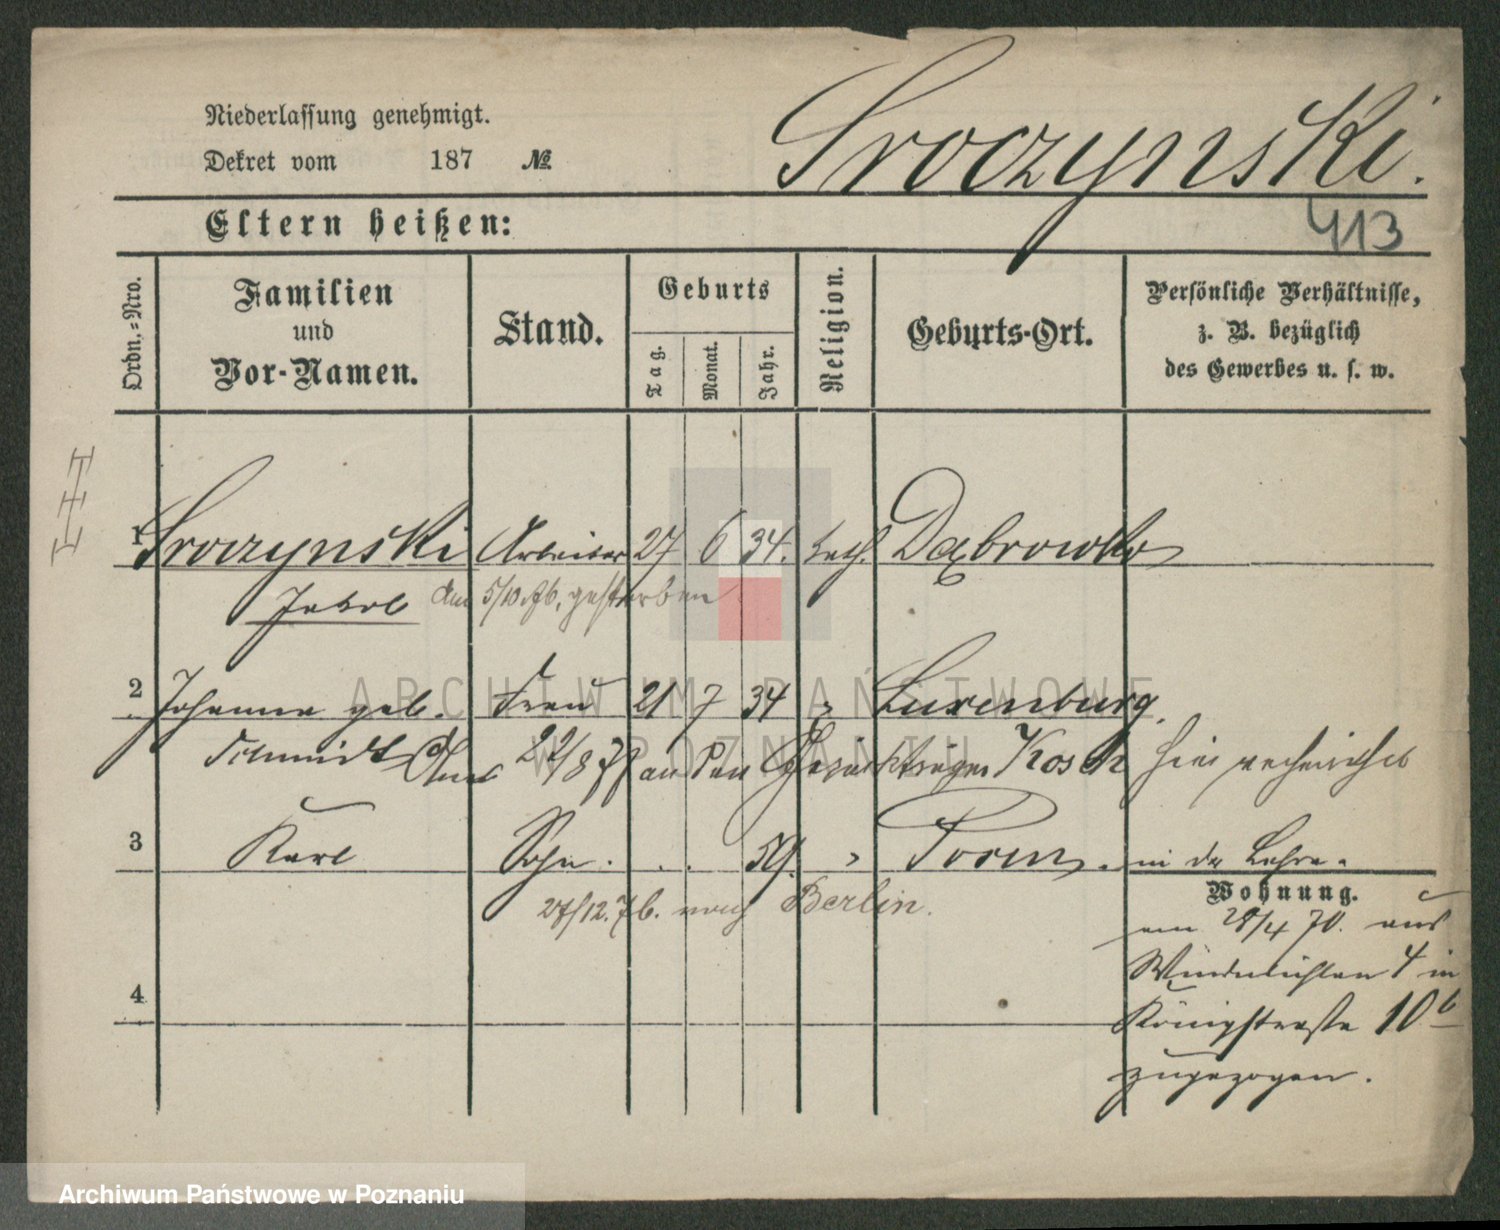 Niederlassung genehmigt.
Dekret vom 187 №
Sroczynski.
413
Eltern heißen:
Ordn.=Nro.
Familien
und
Vor-Namen.
Stand.
Geburts
Tag.
Monat.
Jahr.
Religion.
Geburts-Ort.
Persönliche Verhältnisse,
z. B. bezüglich
des Gewerbes u. s. w.
1 Sroczynski Arbeiter 27 6 34. kath. Dąbrowko
Jakob am 5/10.76. gestorben
2 Johanna geb. Frau 21 7 34 " Luxenburg.
Schmidt Am 22/8 77 an den Gepäckträger Kosch hier verheirathet
3 Karl Sohn . . . 59. " Posen. in der Lehre.
27/12.76. nach Berlin.
Wohnung.
am 28/4 70. aus
Windmühlen 4 in
4 Königstraße 10b
zugezogen.
ARCHIWUM PAŃSTWOWE
W POZNANIU
Archiwum Państwowe w Poznaniu